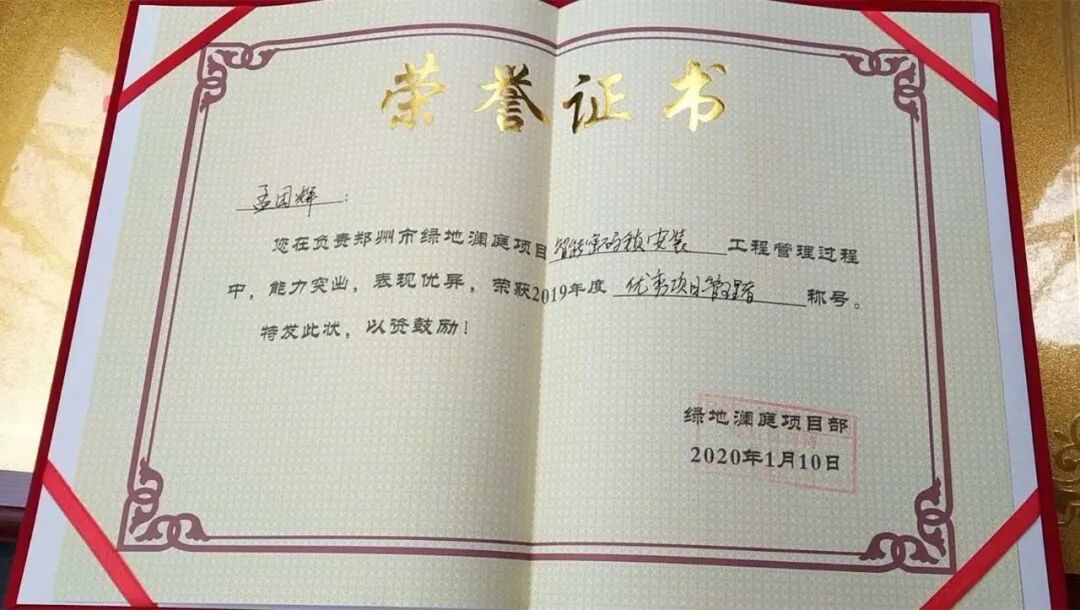 荣誉证书
孟国辉:
您在负责郑州市绿地澜庭项目智能密码锁安装工程管理过程
中,能力突出,表现优异,荣获2019年度优秀项目管理者称号。
特发此状,以资鼓励!
绿地澜庭项目部
2020年1月10日